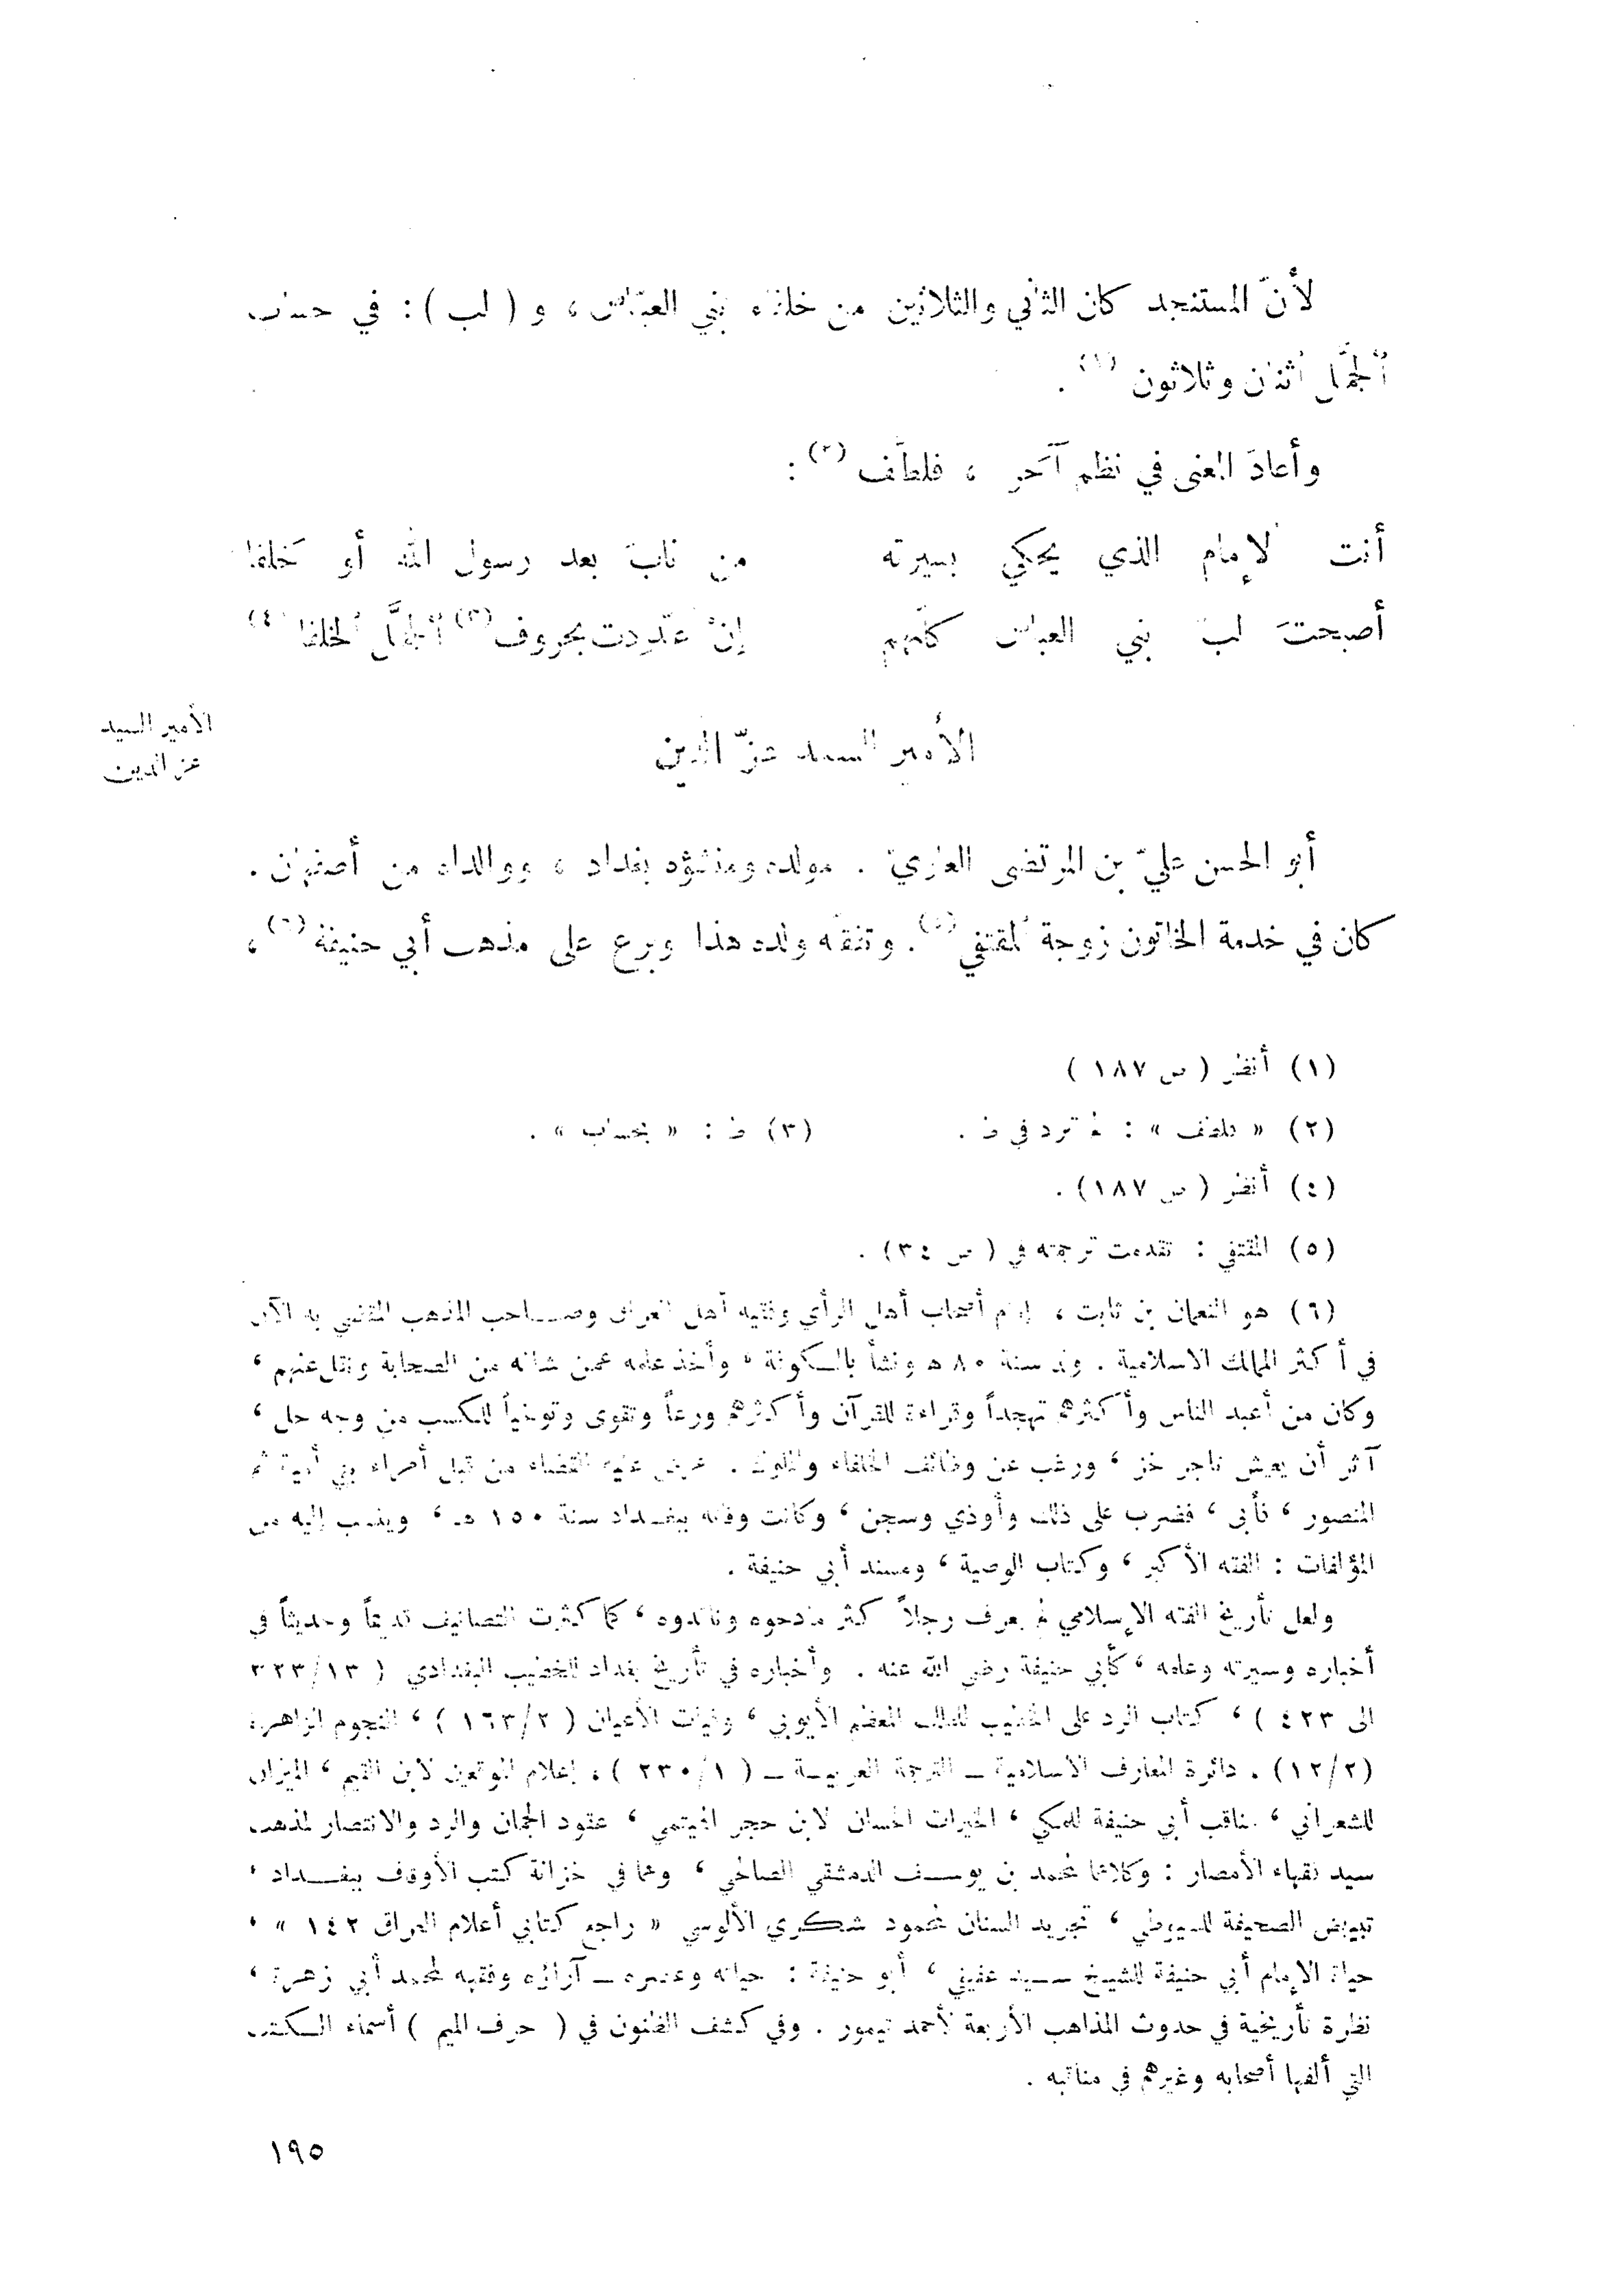 لأنّ المستنجد كان الثاني والثلاثين من خلفاء بني العبّاس ، و ( لب ) : في حساب
ٱلجمَّل ٱثنان وثلاثون (١) .
وأعادَ المعنى في نظم آخر ، فلطّف (٢) :
أنت الإمام الذي يحكي بسيرته من نابَ بعد رسول الله أو خَلَفا
أصبحتَ لبَّ بني العباس كلّهم إنْ عدّدت بحروف (٣) ٱلجمَّل ٱلخلفا (٤)
الأمير السيد عزّ الدين
الأمير السيد
عز الدين
أبو الحسن عليّ بن المرتضى العلويّ . مولده ومنشؤه بغداد ، ووالداه من أصفهان .
كان في خدمة الخاتون زوجة ٱلمقتفي (٥) . وتفقّه ولده هذا وبرع على مذهب أبي حنيفة (٦) ،
(١) أنظر ( ص ١٨٧ )
(٢) « فلطف » : لم ترد في ط . (٣) ط : « بحساب » .
(٤) أنظر ( ص ١٨٧) .
(٥) المقتفي : تقدمت ترجمته في ( ص ٣٤) .
(٦) هو النعمان بن ثابت ، إمام أصحاب أهل الرأي وفقيه أهل العراق وصاحب المذهب المقضي به الآن
في أكثر الممالك الاسلامية . ولد سنة ٨٠ هـ ونشأ بالكوفة ، وأخذ علمه عمن شافه من الصحابة ونقل عنهم ،
وكان من أعبد الناس وأكثرهم تهجداً وقراءة للقرآن وأكثرهم ورعاً وتقوى وتوخياً للكسب من وجه حل ،
آثر أن يعيش تاجر خز ، ورغب عن وظائف الخلفاء والملوك . عرض عليه القضاء من قبل أمراء بني أمية ثم
المنصور ، فأبى ، فضرب على ذلك وأوذي وسجن ، وكانت وفاته ببغداد سنة ١٥٠ هـ ، وينسب إليه من
المؤلفات : الفقه الأكبر ، وكتاب الوصية ، ومسند أبي حنيفة .
ولعل تأريخ الفقه الإسلامي لم يعرف رجلاً كثر مادحوه وناقدوه ، كما كثرت التصانيف قديماً وحديثاً في
أخباره وسيرته وعلمه ، كأبي حنيفة رضي الله عنه . وأخباره في تأريخ بغداد للخطيب البغدادي ( ١٣/ ٣٢٣
الى ٤٢٣ ) ، كتاب الرد على الخطيب للملك المعظم الأيوبي ، وفيات الأعيان ( ٢/ ١٦٣ ) ، النجوم الزاهرة
(٢/ ١٢) . دائرة المعارف الاسلامية ــ الترجمة العربية ــ ( ١/ ٢٣٠ ) ، إعلام الموقعين لابن القيم ، الميزان
للشعراني ، مناقب أبي حنيفة للمكي ، الخيرات الحسان لابن حجر الهيتمي ، عقود الجمان والرد والانتصار لمذهب
سيد فقهاء الأمصار : وكلاهما لمحمد بن يوسف الدمشقي الصالحي ، وهما في خزانة كتب الأوقاف ببغداد ،
تبييض الصحيفة للسيوطي ، تجريد السنان لمحمود شكري الألوسي « راجع كتابي أعلام العراق ١٤٢ » ،
حياة الإمام أبي حنيفة للشيخ سيد عفيفي ، أبو حنيفة : حياته وعصره ــ آراؤه وفقهه لمحمد أبي زهرة ،
نظرة تأريخية في حدوث المذاهب الأربعة لأحمد تيمور . وفي كشف الظنون في ( حرف الميم ) أسماء الكتب
التي ألفها أصحابه وغيرهم في مناقبه .
١٩٥